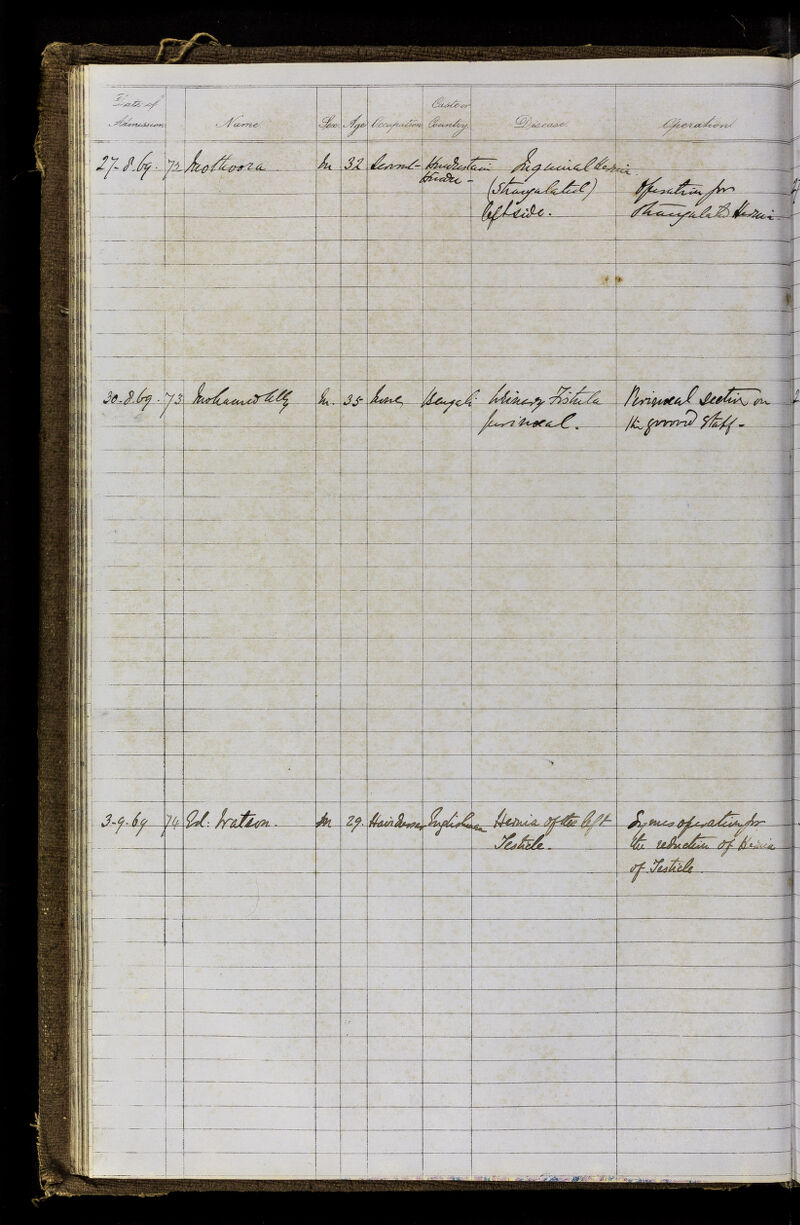 Date of Admission Name Sex Age Occupation Caste or Country Disease Operation
27-8.69. 72 Mothoora M 32 Servant- Hindustani Inguinal Hernia
Hindu- (Strangulated) Operation for
left side. Strangulated Hernia
30-8.69. 73 Mohamed Ally M. 35 None Bengali Urinary Fistula Perinaeal section on
perinaeal. the grooved staff-
3-9.69 74 Ed. Watson. M 29. Hairdresser Englishman Hernia of the left Symes operation for
Testicle. the reduction of Hernia
of Testicle.